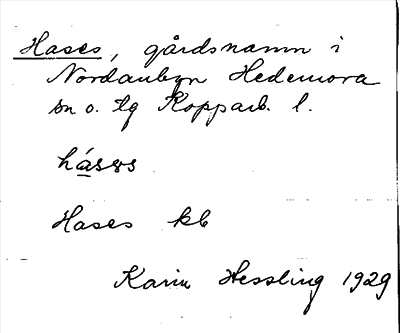 Hases, gårdsnamn i
Nordanbyn Hedemora
sn o. tg Kopparb. l.
Hases kb
Karin Hessling 1929